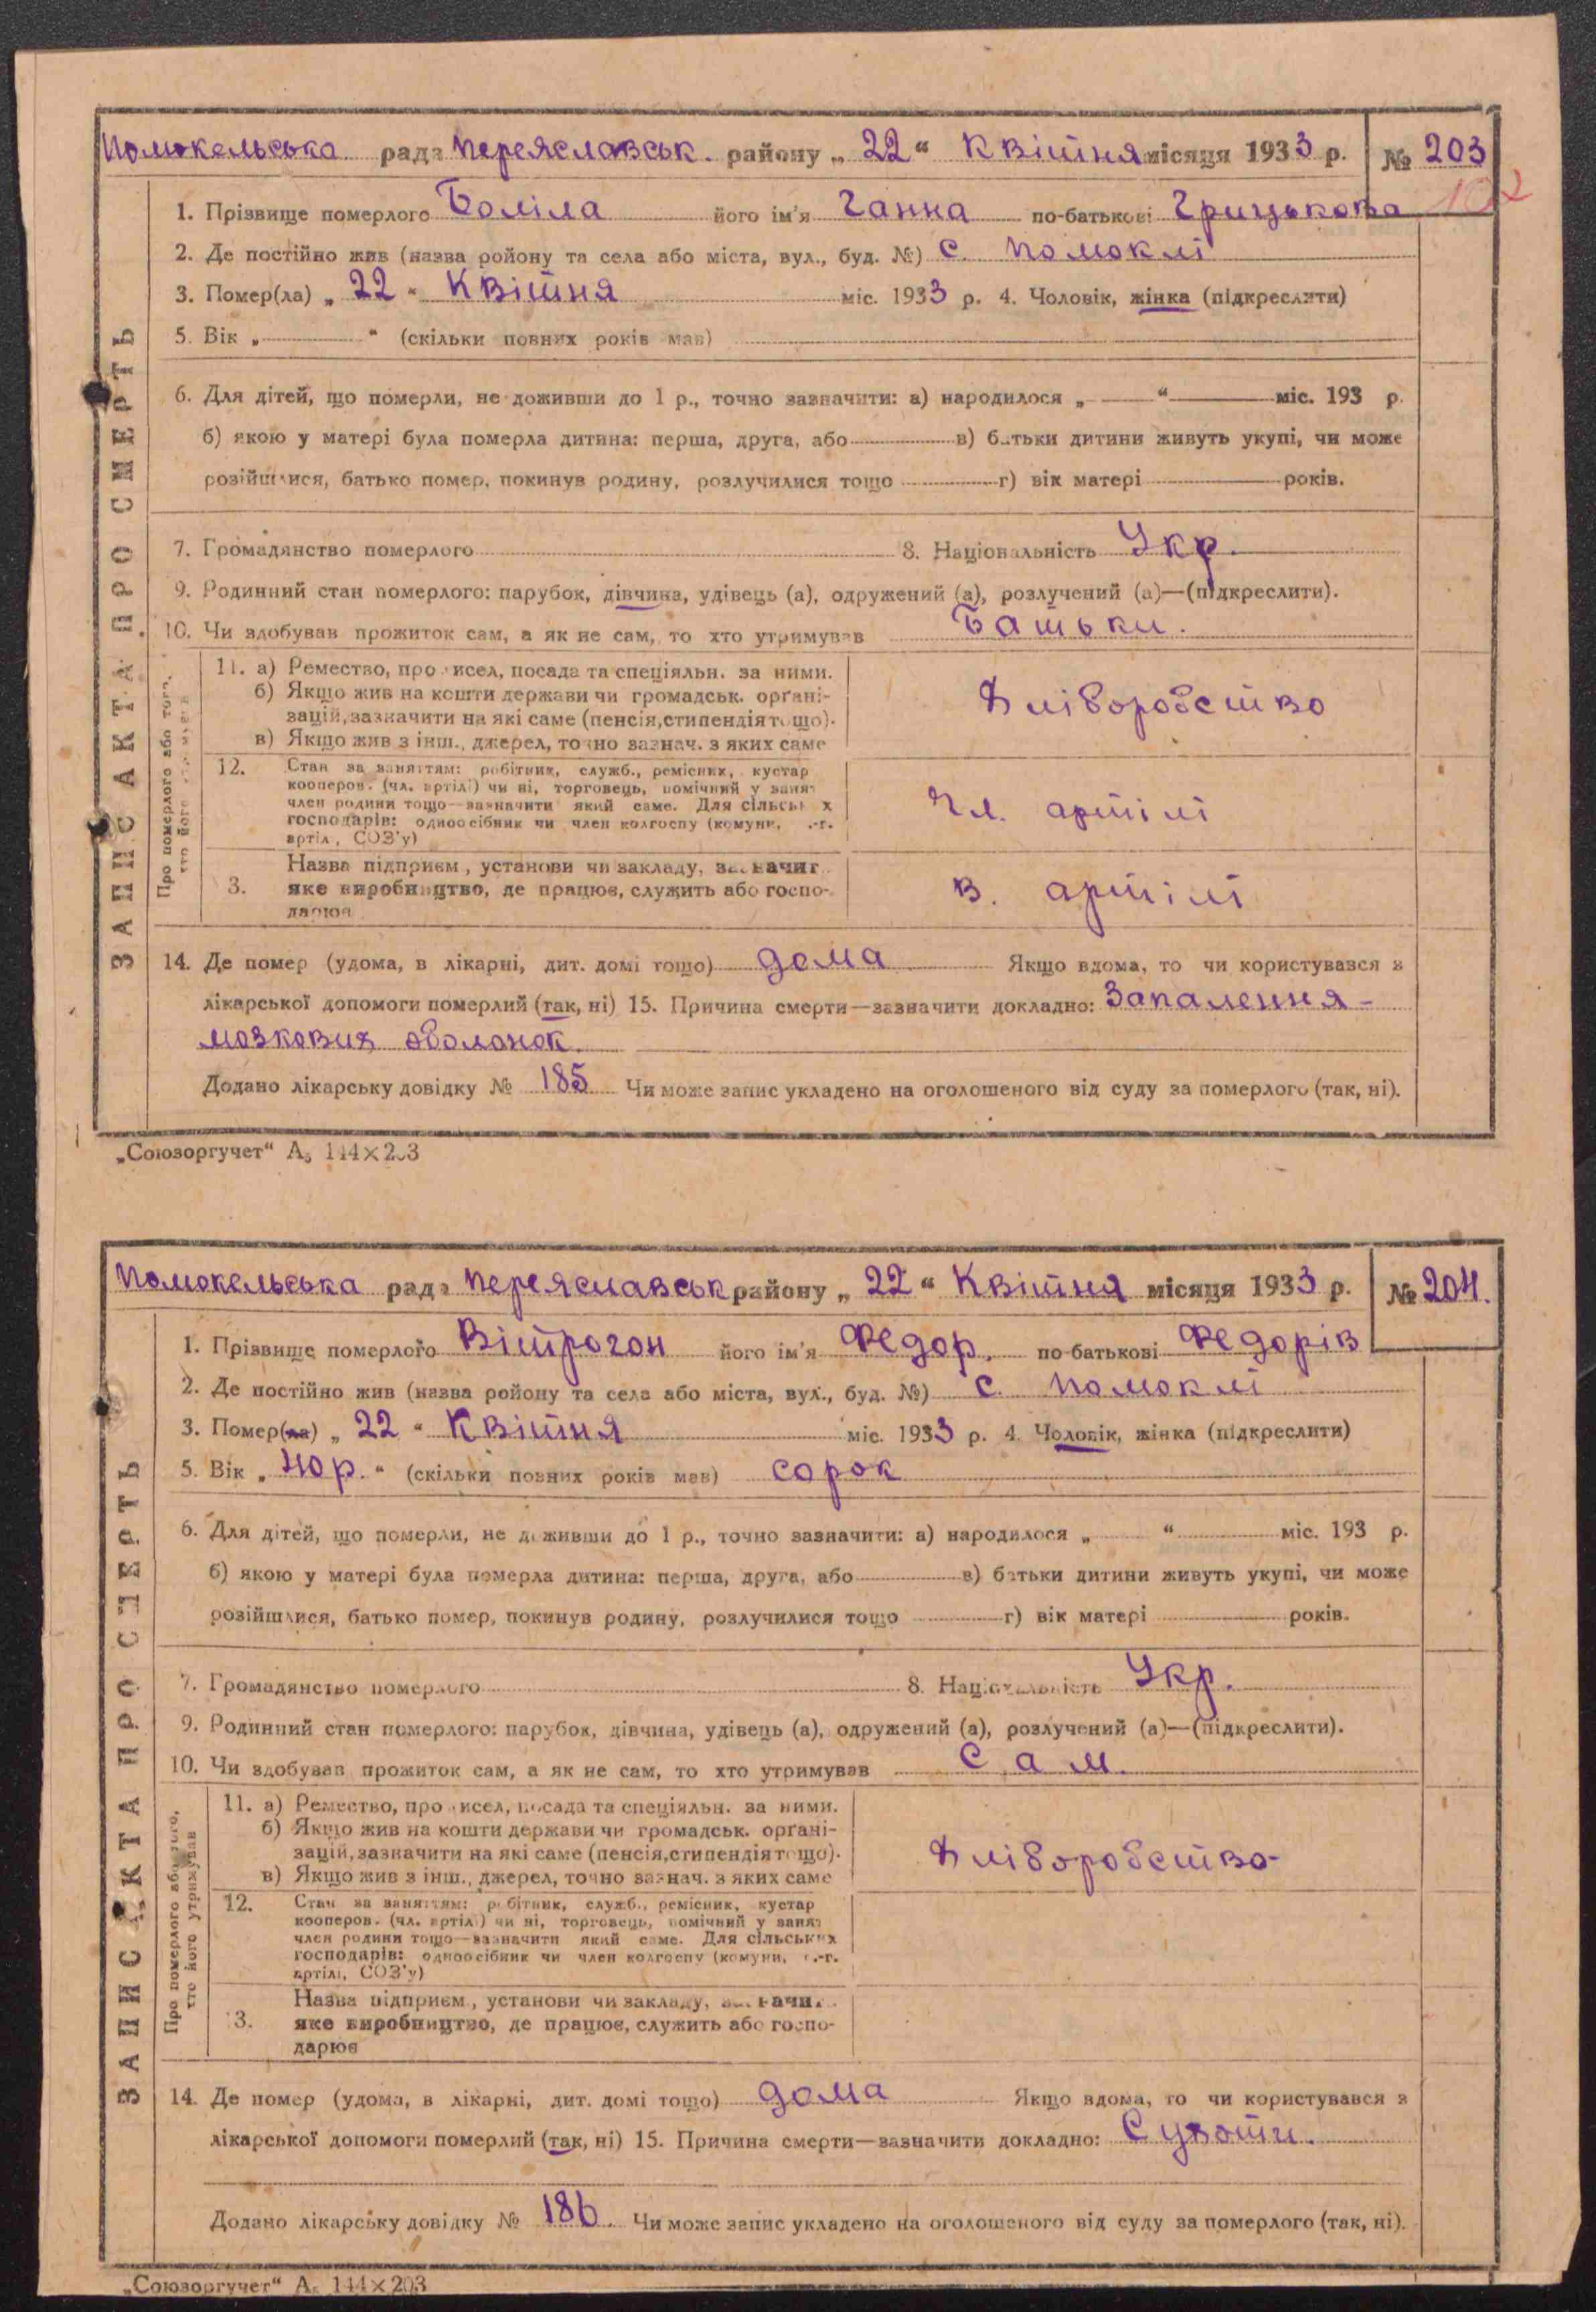 Помокельська рада Переяславськ. району „ 22 “ Квітня місяця 1933 р. № 203
102
1. Прізвище померлого Боліла його ім'я Ганна по-батькові Грицькова
2. Де постійно жив (назва району та села або міста, вул., буд. №) с. Помоклі
3. Помер(ла) „ 22 “ Квітня міс. 1933 р. 4. Чоловік, жінка (підкреслити)
5. Вік „ “ (скільки повних років мав)
6. Для дітей, що померли, не доживши до 1 р., точно зазначити: а) народилося „ “ міс. 193 р.
б) якою у матері була померла дитина: перша, друга, або в) батьки дитини живуть укупі, чи може
розійшлися, батько помер, покинув родину, розлучилися тощо г) вік матері років.
7. Громадянство померлого 8. Національність Укр.
9. Родинний стан померлого: парубок, дівчина, удівець (а), одружений (а), розлучений (а)—(підкреслити).
10. Чи здобував прожиток сам, а як не сам, то хто утримував Батьки.
11. а) Ремество, промисел, посада та спеціяльн. за ними.
б) Якщо жив на кошти держави чи громадськ. орґані-
зацій, зазначити на які саме (пенсія, стипендія тощо).
в) Якщо жив з інш., джерел, точно зазнач. з яких саме
Хліборобство
12. Стан за заняттям: робітник, служб., ремісник, кустар
кооперов. (чл. артілі) чи ні, торговець, помічний у занят
член родини тощо—зазначити який саме. Для сільських
господарів: одноосібник чи член колгоспу (комуни, с.-г.
артілі, СОЗ'у)
Чл. артілі
13. Назва підприєм., установи чи закладу, зазначит
яке виробництво, де працює, служить або госпо-
дарює
в. артілі
14. Де помер (удома, в лікарні, дит. домі тощо) дома Якщо вдома, то чи користувався з
лікарської допомоги померлий (так, ні) 15. Причина смерти—зазначити докладно: Запалення-
мозкових оболонок.
Додано лікарську довідку № 185 Чи може запис укладено на оголошеного від суду за померлого (так, ні).
ЗАПИС АКТА ПРО СМЕРТЬ
Про померлого або того,
хто його утримував
„Союзоргучет“ А5 144×203
Помокельська рада Переяславськ району „ 22 “ Квітня місяця 1933 р. № 204.
1. Прізвище померлого Вітрогон його ім'я Федор. по-батькові Федорів
2. Де постійно жив (назва району та села або міста, вул., буд. №) с. Помоклі
3. Помер(ла) „ 22 “ Квітня міс. 1933 р. 4. Чоловік, жінка (підкреслити)
5. Вік „ 40 р. “ (скільки повних років мав) сорок
6. Для дітей, що померли, не доживши до 1 р., точно зазначити: а) народилося „ “ міс. 193 р.
б) якою у матері була померла дитина: перша, друга, або в) батьки дитини живуть укупі, чи може
розійшлися, батько помер, покинув родину, розлучилися тощо г) вік матері років.
7. Громадянство померлого 8. Національність Укр.
9. Родинний стан померлого: парубок, дівчина, удівець (а), одружений (а), розлучений (а)—(підкреслити).
10. Чи здобував прожиток сам, а як не сам, то хто утримував Сам.
11. а) Ремество, промисел, посада та спеціяльн. за ними.
б) Якщо жив на кошти держави чи громадськ. орґані-
зацій, зазначити на які саме (пенсія, стипендія тощо).
в) Якщо жив з інш., джерел, точно зазнач. з яких саме
Хліборобство-
12. Стан за заняттям: робітник, служб., ремісник, кустар
кооперов. (чл. артілі) чи ні, торговець, помічний у занят
член родини тощо—зазначити який саме. Для сільських
господарів: одноосібник чи член колгоспу (комуни, с.-г.
артілі, СОЗ'у)
13. Назва підприєм., установи чи закладу, зазначит
яке виробництво, де працює, служить або госпо-
дарює
14. Де помер (удома, в лікарні, дит. домі тощо) дома Якщо вдома, то чи користувався з
лікарської допомоги померлий (так, ні) 15. Причина смерти—зазначити докладно: Сухоти.
Додано лікарську довідку № 186. Чи може запис укладено на оголошеного від суду за померлого (так, ні).
ЗАПИС АКТА ПРО СМЕРТЬ
Про померлого або того,
хто його утримував
„Союзоргучет“ А5 144×203